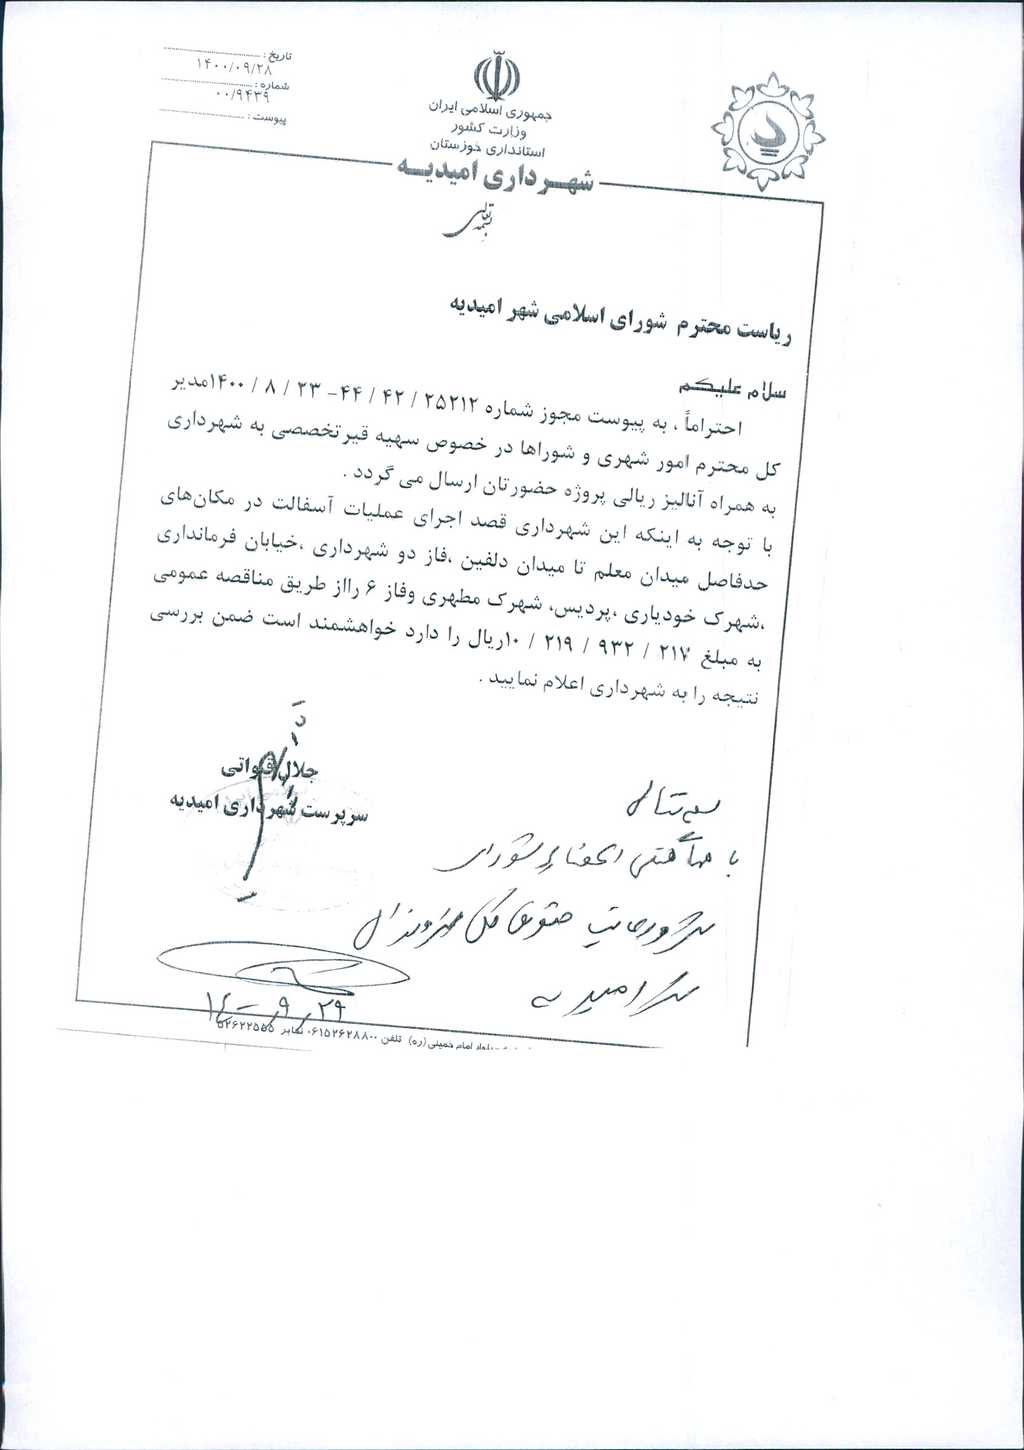 تاریخ : ۱۴۰۰/۰۹/۲۸
شماره : ۰۰/۹۴۳۹
پیوست :
جمهوری اسلامی ایران
وزارت کشور
استانداری خوزستان
شهرداری امیدیه
بسمه تعالی
ریاست محترم شورای اسلامی شهر امیدیه
سلام علیکم
احتراماً ، به پیوست مجوز شماره ۲۵۲۱۲ / ۴۲ / ۴۴- ۲۳ / ۸ / ۱۴۰۰مدیر
کل محترم امور شهری و شوراها در خصوص سهیه قیرتخصصی به شهرداری
به همراه آنالیز ریالی پروژه حضورتان ارسال می گردد .
با توجه به اینکه این شهرداری قصد اجرای عملیات آسفالت در مکان‌های
حدفاصل میدان معلم تا میدان دلفین ،فاز دو شهرداری ،خیابان فرمانداری
،شهرک خودیاری ،پردیس، شهرک مطهری وفاز ۶ رااز طریق مناقصه عمومی
به مبلغ ۲۱۷ / ۹۳۲ / ۲۱۹ / ۱۰ریال را دارد خواهشمند است ضمن بررسی
نتیجه را به شهرداری اعلام نمایید .
جلال قنواتی
سرپرست شهرداری امیدیه
با اعضاء شورای
امیدیه
امام خمینی (ره) تلفن ۰۶۱۵۲۶۲۸۸۰۰ نمابر ۵۲۶۲۲۵۵۵